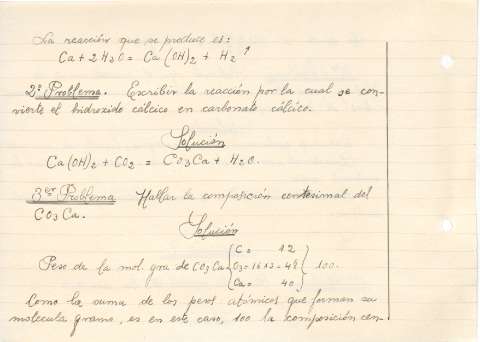 La reacción que se produce es:
Ca + 2H2O = Ca(OH)2 + H2 ↑
2º Problema. Escribir la reacción por la cual se con-
vierte el hidroxido cálcico en carbonato cálcico.
Solución
Ca(OH)2 + CO2 = CO3Ca + H2O.
3er Problema Hallar la composición centesimal del
CO3Ca.
Solución
C = 12
Peso de la mol. gra de CO3Ca = { O3 = 16×3 = 48 } 100.
Ca = 40.
Como la suma de los pesos atómicos que forman su
molecula gramo, es en este caso, 100 la composición cen-